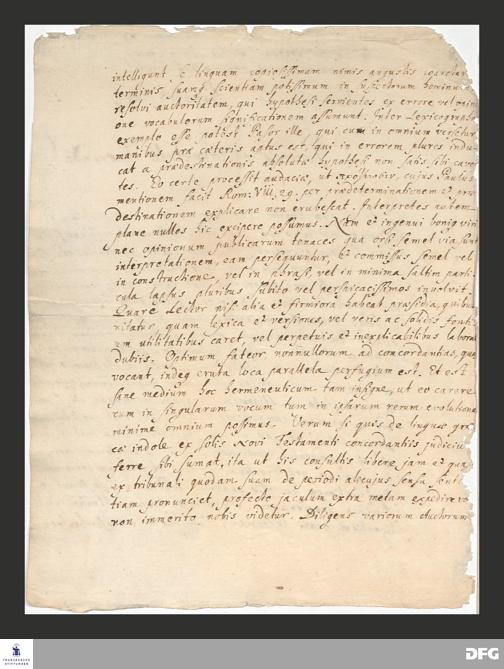 intelligunt & linguam copiosissimam nimis angustis
terminis suamq; scientiam potissimum in suspectorum hominum
resolvi auctoritatem, qui hypothesi servientes ex errore vel
one vocabulorum significationem assumunt. Inter Lexicographos
exemplo esse potest Pasor ille, qui cum in omnium versetur
manibus præ cæteris aptus est, qui in errorem plures indu
cat a prædestinationis absolutæ hypothesi non satis sibi caven
tes. Eo certe processit audaciæ, ut cujus Paulus
mentionem facit Rom: VIII, 29. per prædeterminationem et præ
destinationem explicare non erubescat. Interpretes autem
plane nullos hic excipere possumus. Nam et ingenui boniq; viri
nec opinionum publicarum tenaces qua orsi semel via sunt
interpretationem, eam persequuntur, & commissus semel vel
in constructione, vel in phrasi, vel in minima saltim parti
cula lapsus pluribus subito vel perspicacissimos involvit.
Quare Lector nisi alia et firmiora habeat præsidia, quibus
nitatur, quam lexica et versiones, vel veris ac solidis fonti
um utilitatibus caret, vel perpetuis et inexplicabilibus laborat
dubiis. Optimum fateor nonnullorum ad concordantias, quas
vocant, indeq; eruta loca parallela perfugium est. Et est
sane medium hoc hermeneuticum tam insigne, ut eo carere
cum in singularum vocum tum in ipsarum rerum evolutione
minime omnium possimus. Verum si quis de linguæ græ
cæ indole ex solis Novi Testamenti concordantiis judicium
ferre sibi sumat, ita ut his consultis libere jam et quasi
ex tribunali quodam suam de periodi alicujus sensu senten
tiam pronunciet, profecto jaculum extra metam expedire
non immerito nobis videtur. Diligens variorum Auctorum
FRANCKESCHE
STIFTUNGEN
DFG